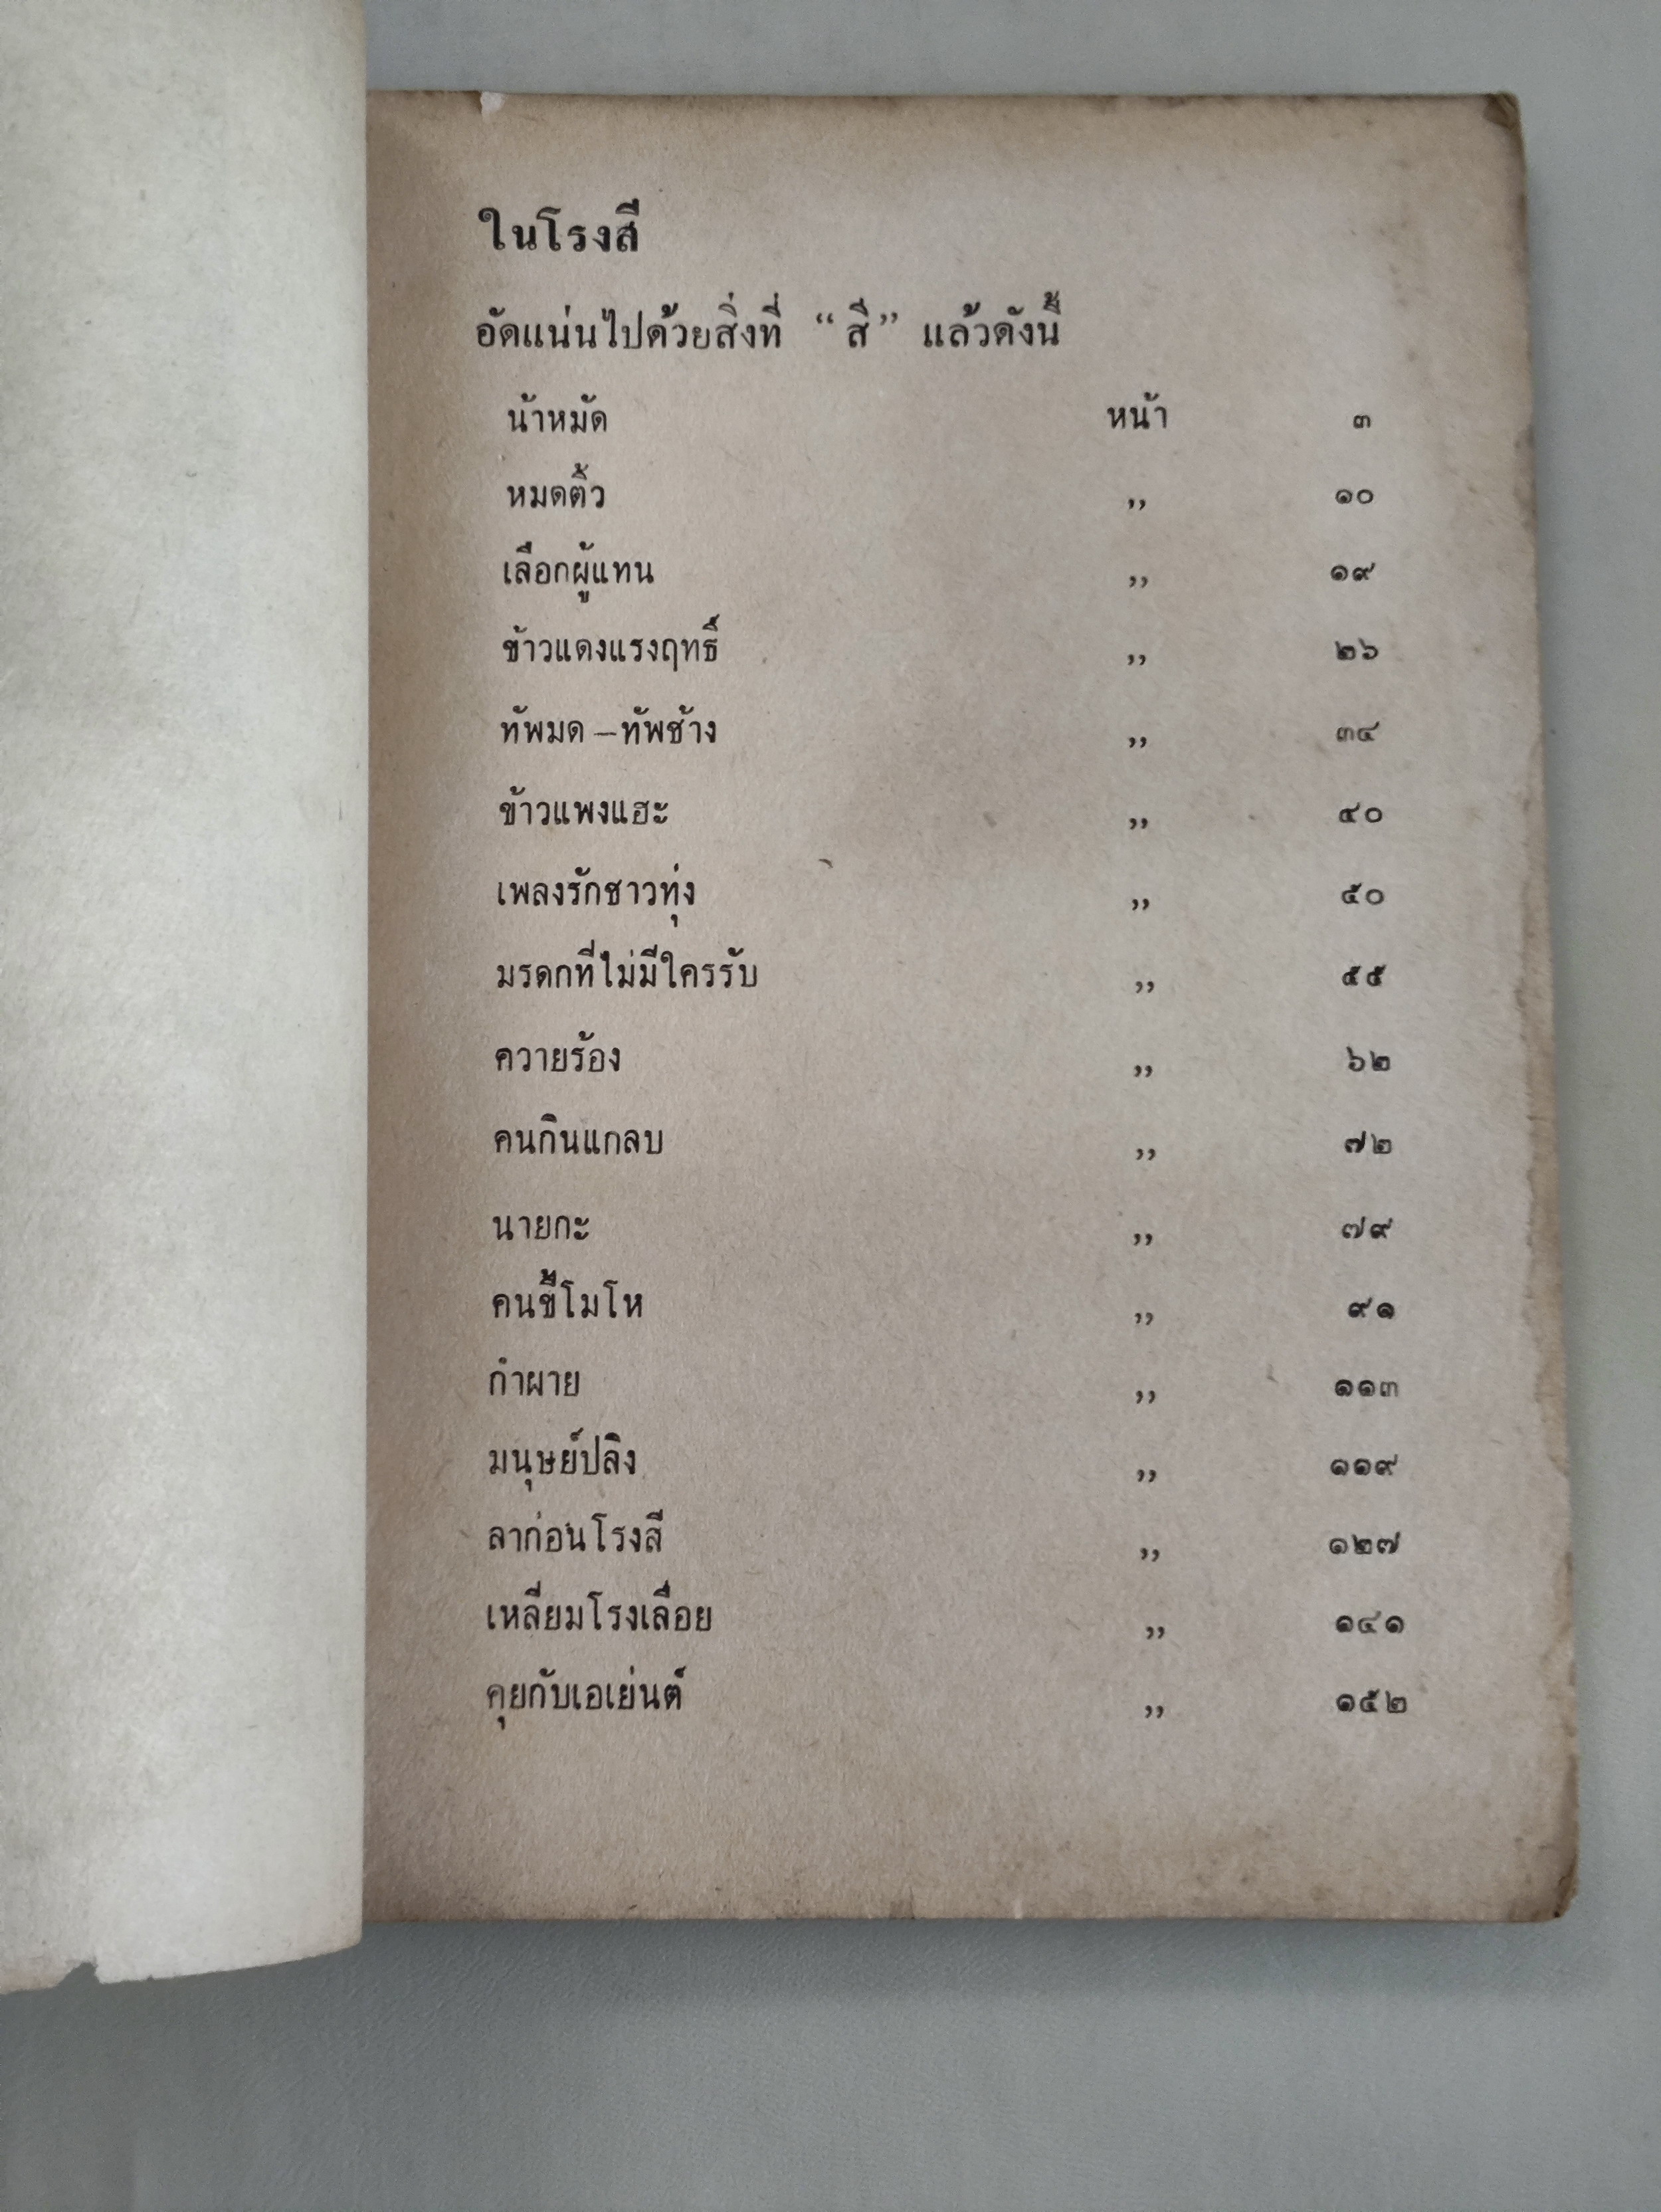 ในโรงสี
อัดแน่นไปด้วยสิ่งที่ “สี” แล้วดังนี้
น้าหมัด หน้า ๓
หมดติ้ว ,, ๑๐
เลือกผู้แทน ,, ๑๙
ข้าวแดงแรงฤทธิ์ ,, ๒๖
ทัพมด – ทัพช้าง ,, ๓๔
ข้าวแพงแฮะ ,, ๔๐
เพลงรักชาวทุ่ง ,, ๕๐
มรดกที่ไม่มีใครรับ ,, ๕๕
ควายร้อง ,, ๖๒
คนกินแกลบ ,, ๗๒
นายกะ ,, ๗๙
คนขี้โมโห ,, ๙๑
กำผาย ,, ๑๑๓
มนุษย์ปลิง ,, ๑๑๙
ลาก่อนโรงสี ,, ๑๒๗
เหลี่ยมโรงเลื่อย ,, ๑๔๑
คุยกับเอเย่นต์ ,, ๑๕๒